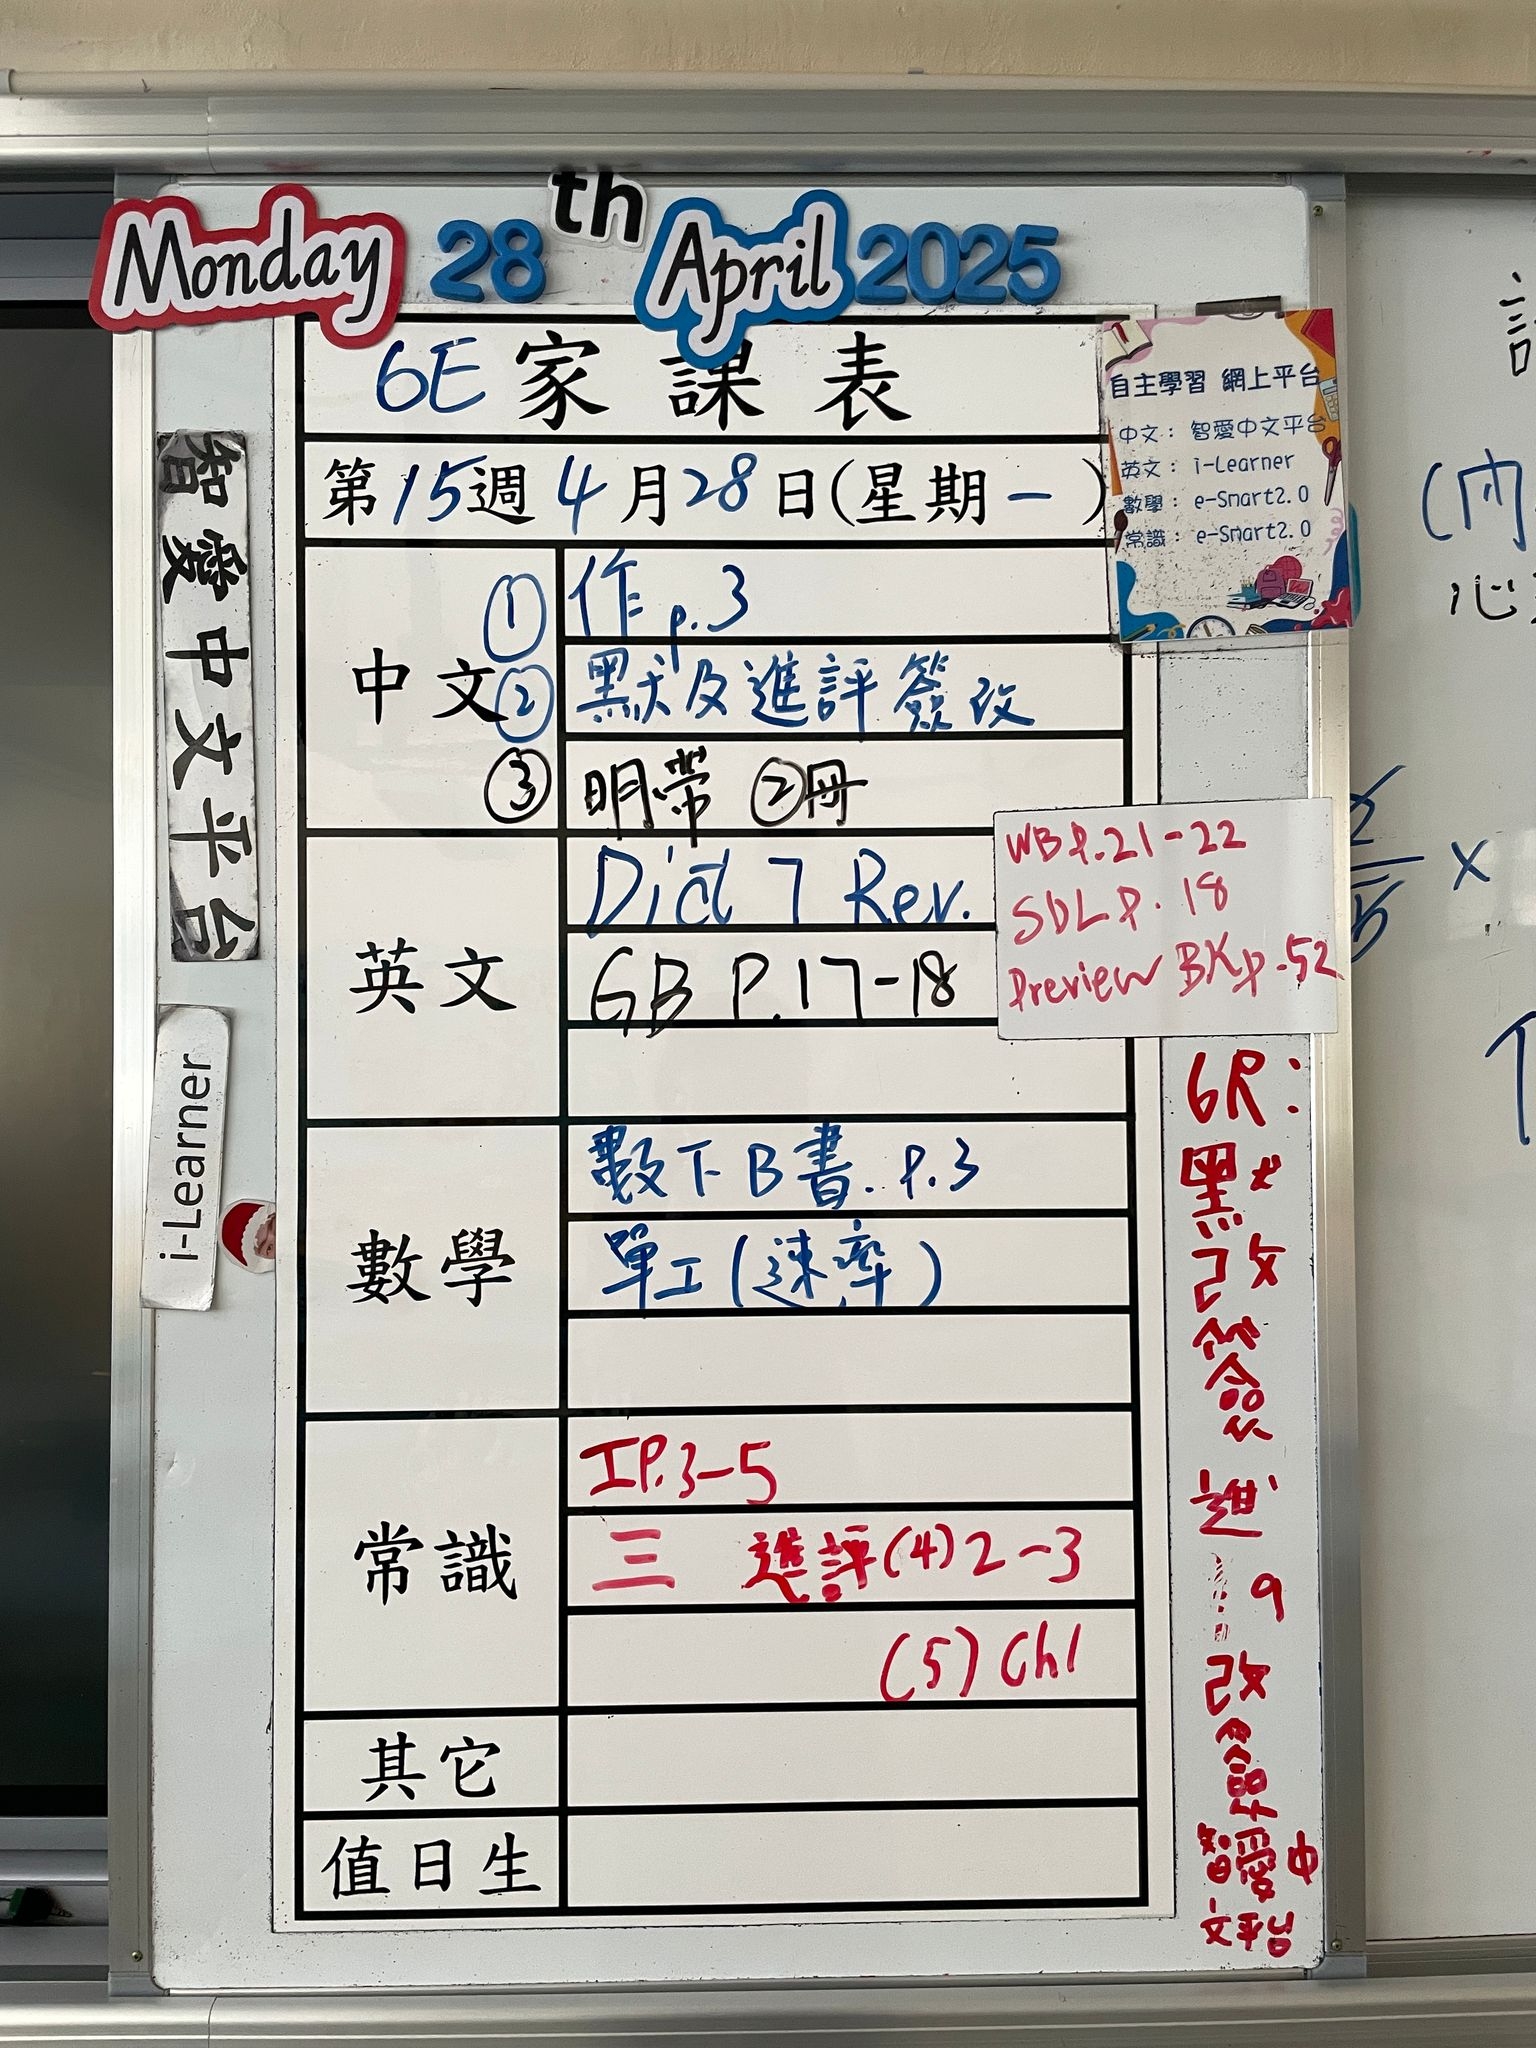 Monday 28th April 2025
6E 家課表
第15週 4月28日(星期一)
自主學習 網上平台
中文：智愛中文平台
英文：i-Learner
數學：e-Smart2.0
常識：e-Smart2.0
智愛中文平台
i-Learner
中文
① 作 p.3
② 默及進評簽改
③ 明帶 ②冊
英文
Dict 7 Rev.
GB P.17-18
WB p.21-22
SDL p.18
Preview BK p.52
數學
數下B書.p.3
單工(速率)
常識
IP.3-5
三 進評(4)2-3
(5)Ch1
其它
值日生
6R:
默
改
簽
進
9
改
簽
智愛中
文平台
(內
心
×